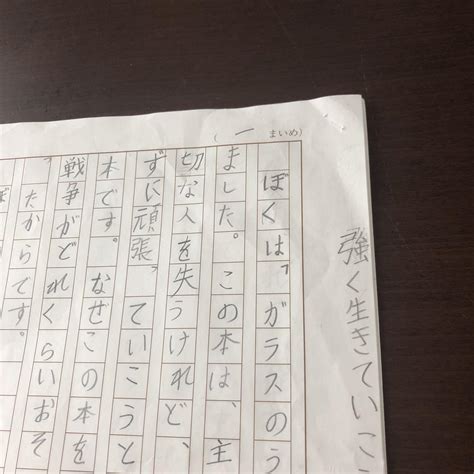 強く生きていこ
(一 まいめ)
ぼくは、「ガラスのう
ました。この本は、主
切な人を失うけれど、
ずに頑張っていこうと
本です。なぜこの本を
戦争がどれくらいおそ
たからです。